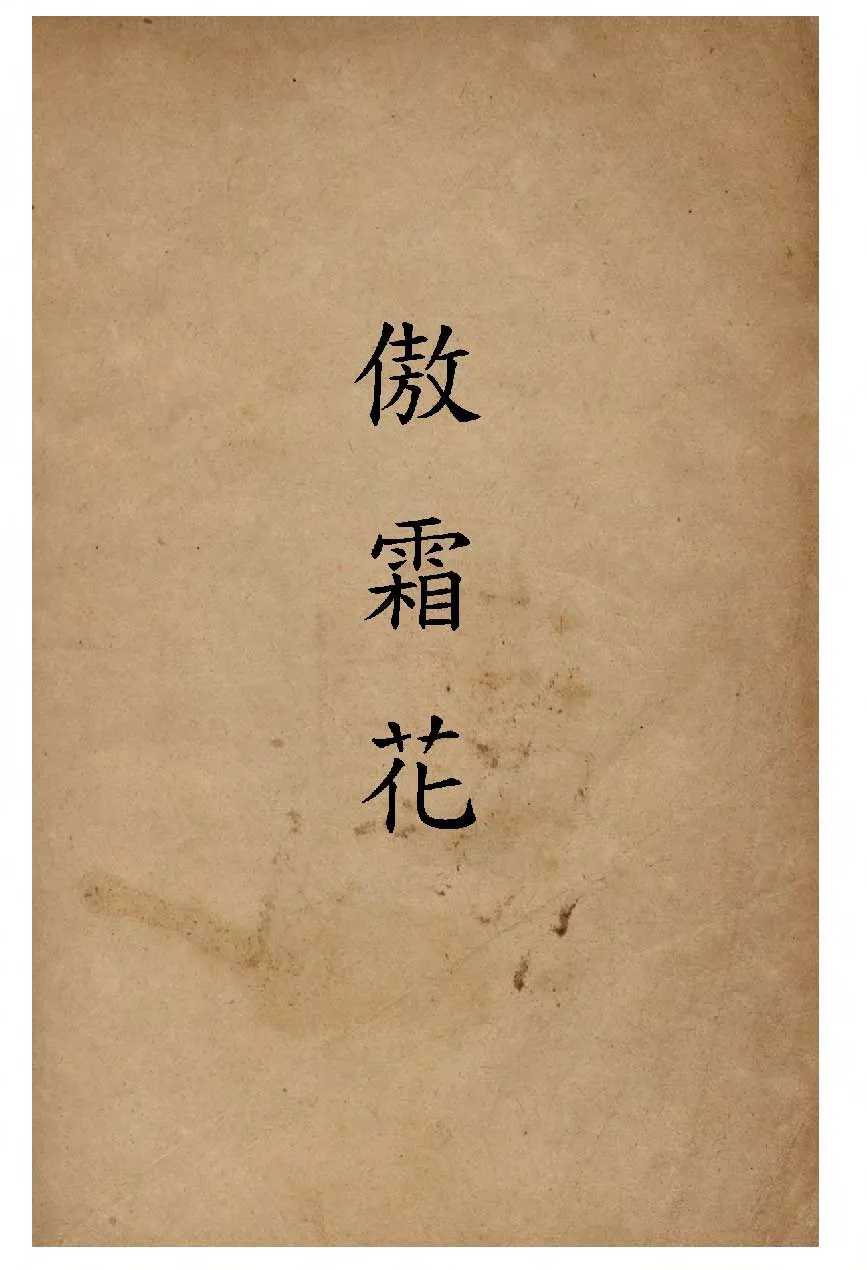 傲霜花